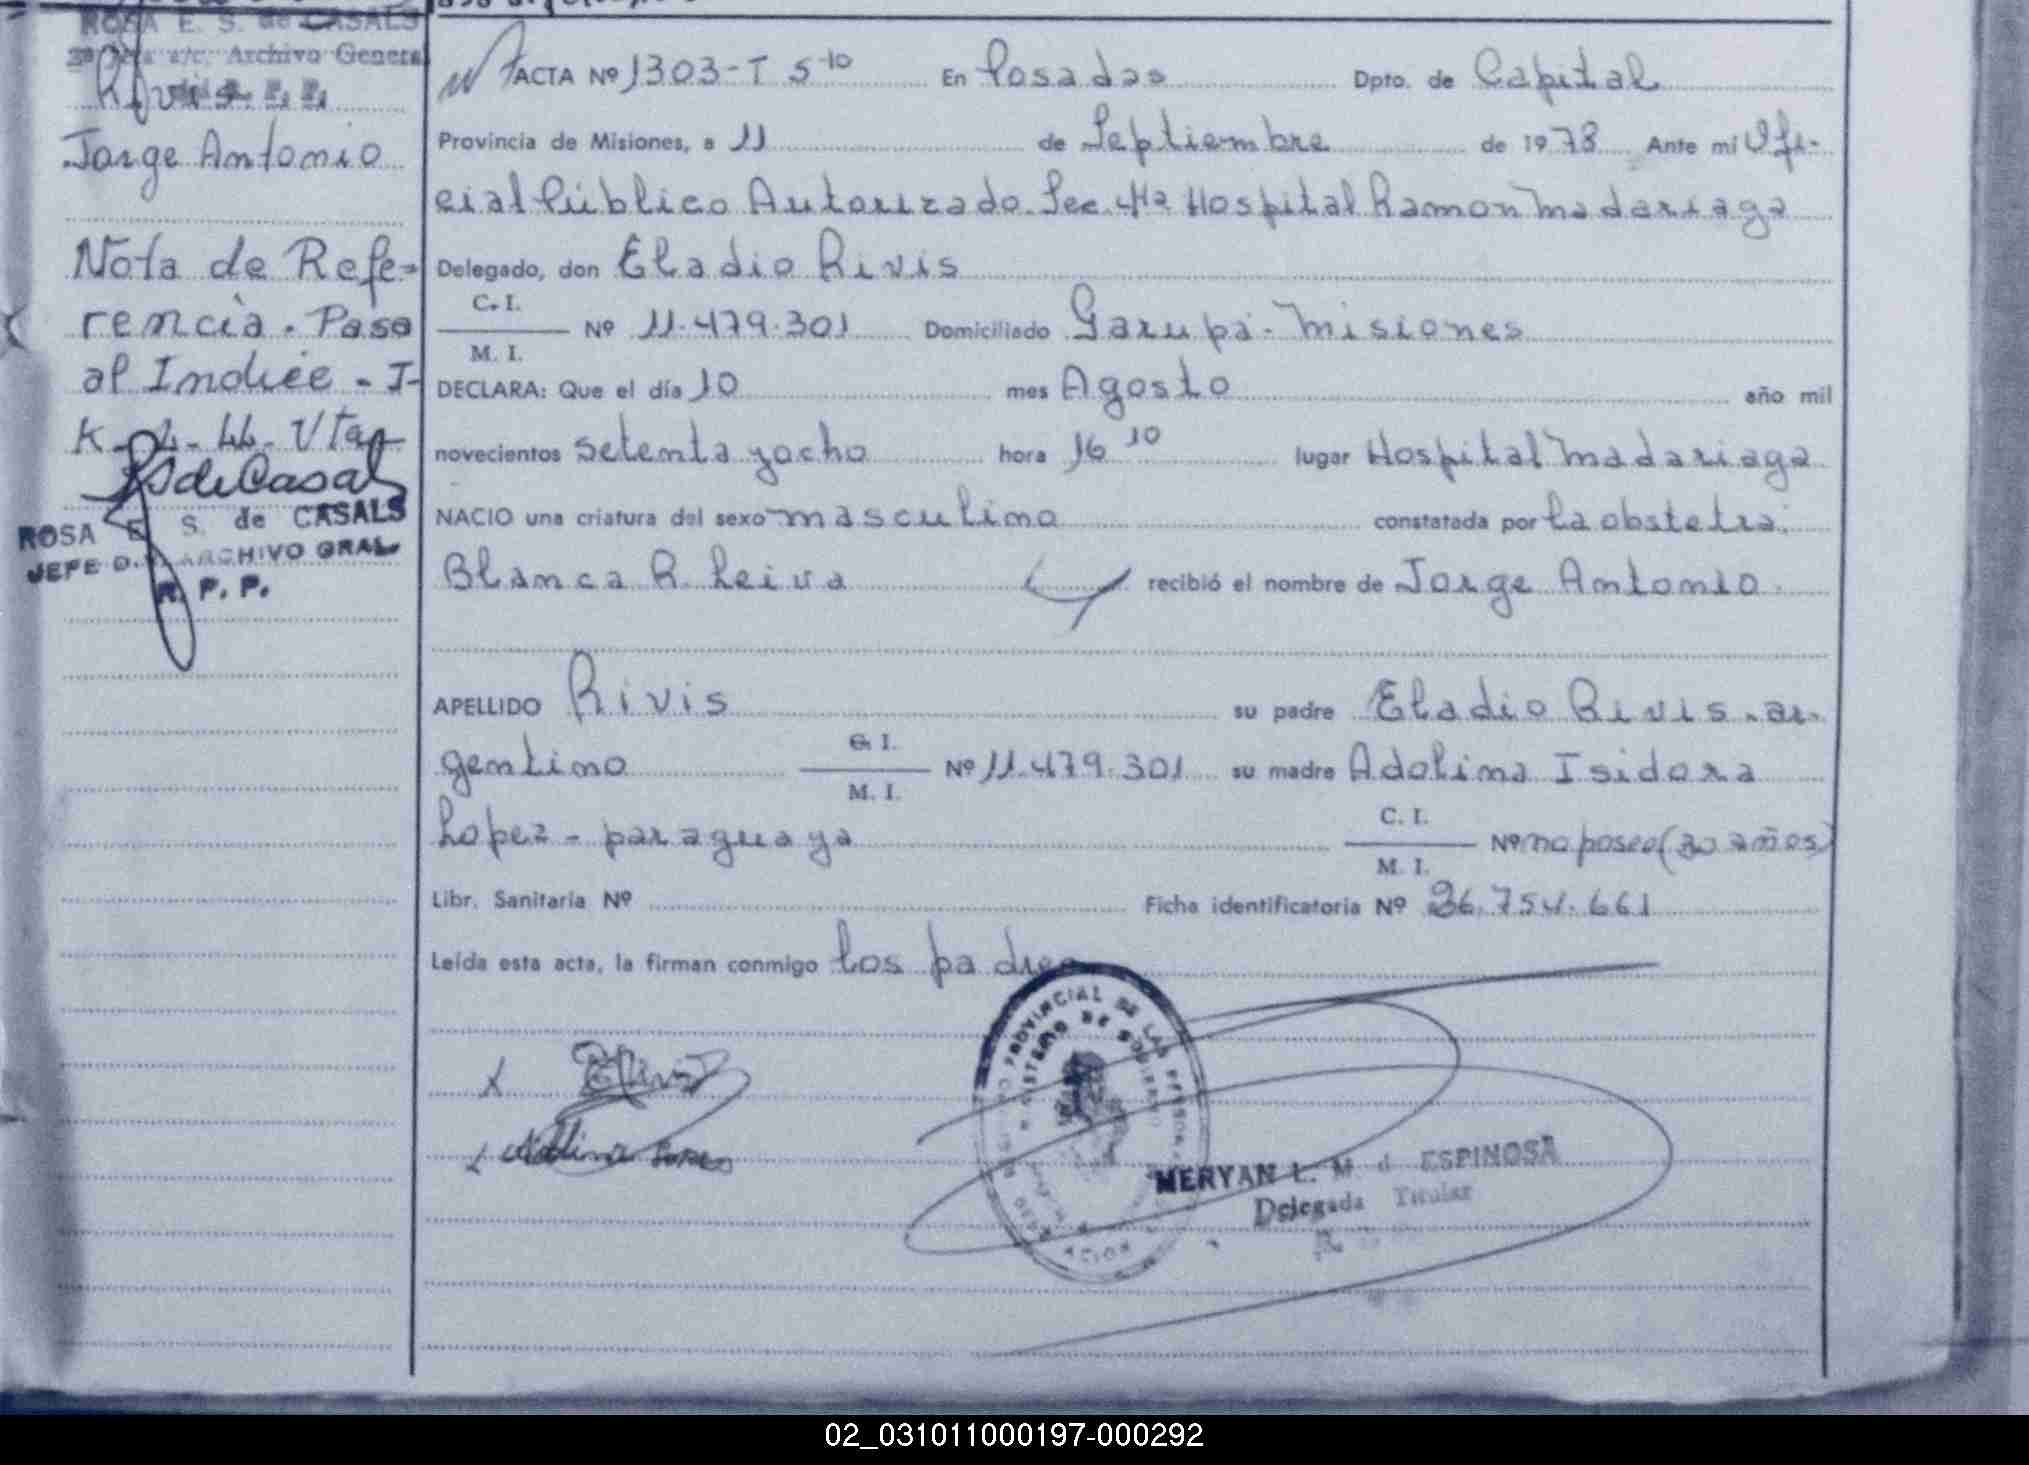 ROSA E. S. de CASALS
Archivo General
Rivis
Jorge Antonio
Nota de Refe-
rencia. Pasa
al Indice - T-
K - 2 - 44 - Vta
RSdeCasals
ROSA E. S. de CASALS
JEFE ARCHIVO GRAL
R. P. P.
ACTA Nº 1303-T 5-10 En Posadas Dpto. de Capital
Provincia de Misiones, a 11 de Septiembre de 1978 Ante mi Ofi-
cial Público Autorizado Sec 4ta Hospital Ramon Madariaga
Delegado, don Eladio Rivis
C. I.
M. I. Nº 11.479.301 Domiciliado Garupá - Misiones
DECLARA: Que el día 10 mes Agosto año mil
novecientos setenta y ocho hora 16 10 lugar Hospital Madariaga
NACIO una criatura del sexo masculino constatada por la obstetra:
Blanca R. Leiva recibió el nombre de Jorge Antonio.
APELLIDO Rivis su padre Eladio Rivis - ar-
gentino C. I.
M. I. Nº 11.479.301 su madre Adolina Isidora
Lopez - paraguaya C. I.
M. I. Nº no posee (30 años)
Libr. Sanitaria Nº Ficha identificatoria Nº 26.754.661
Leída esta acta, la firman conmigo los padres
X ERivis
X Adolina Lopez
PROVINCIAL DE LAS PERSONAS
MINISTERIO DE GOBIERNO
MERYAN L. M. d ESPINOSA
Delegada Titular
02_031011000197-000292